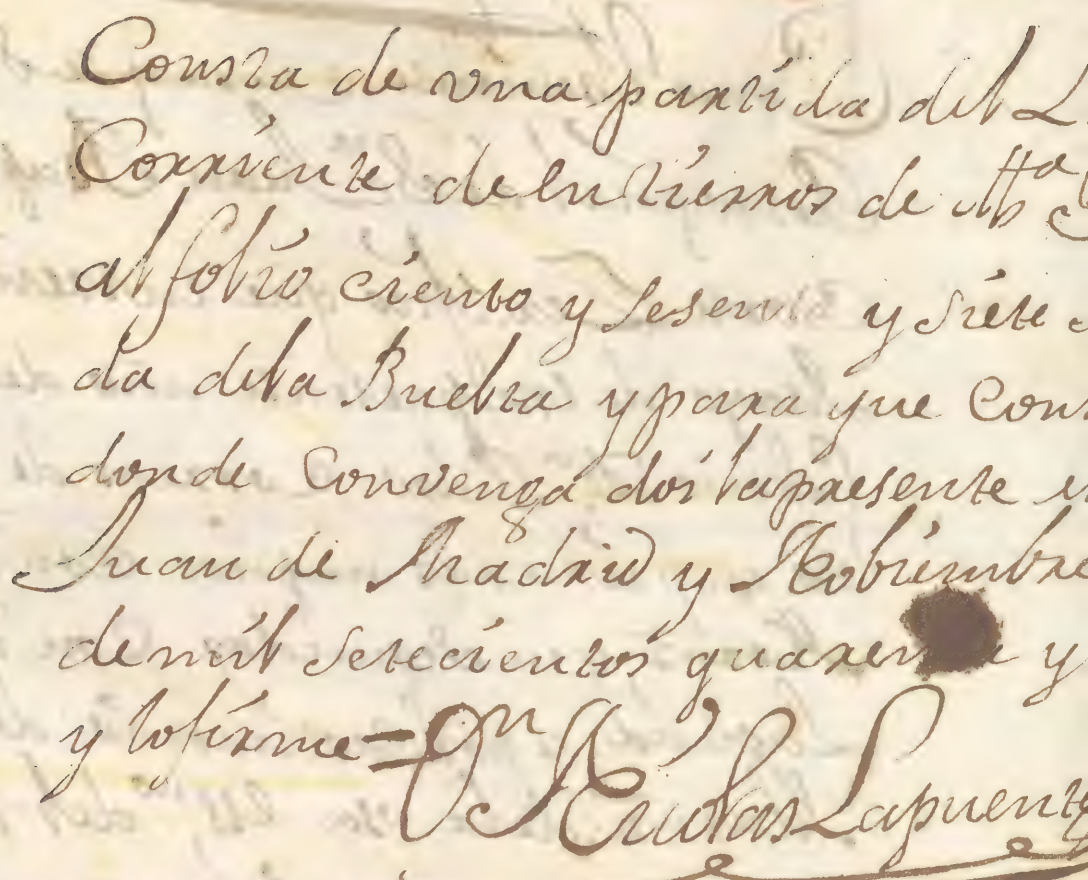 Consta de vna partida del L
Corriente de entierros de dha
al folio ciento y sesenta y siete
da dela Buelta y para que Cons
donde Convenga doi la presente
Juan de Madrid y Nobiembre
de mil setecientos quarenta y
y lo firme = Dn Nicolas Lapuente